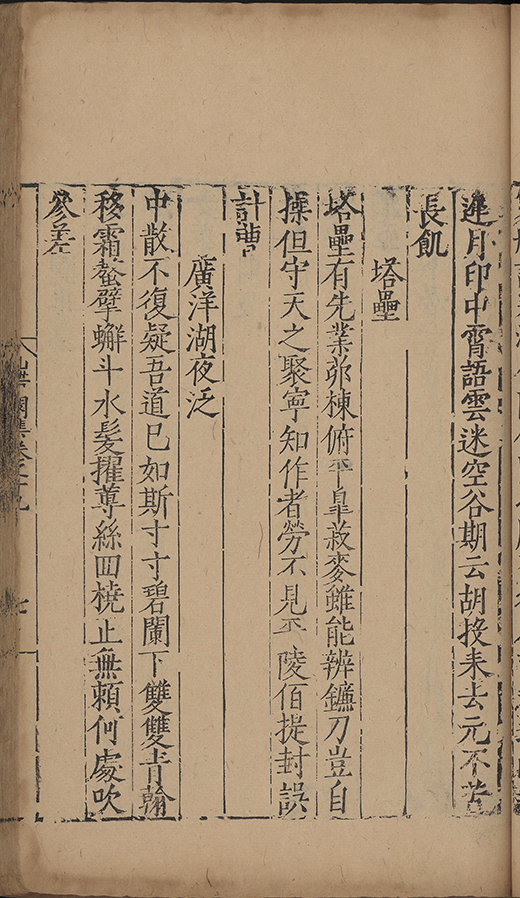 連月印中霄語雲迷空谷期云胡投耒去元不苦
長飢
塔壘
塔壘有先業茆棟俯平臯菽麥雖能辨鐮刀豈自
操但守天之聚寧知作者勞不見平陵佰提封誤
計曹
廣洋湖夜泛
中散不復疑吾道已如斯寸寸碧闌下雙雙青翰
移霜螯擘蠏斗水髮擢蓴絲回橈止無賴何處吹
參差